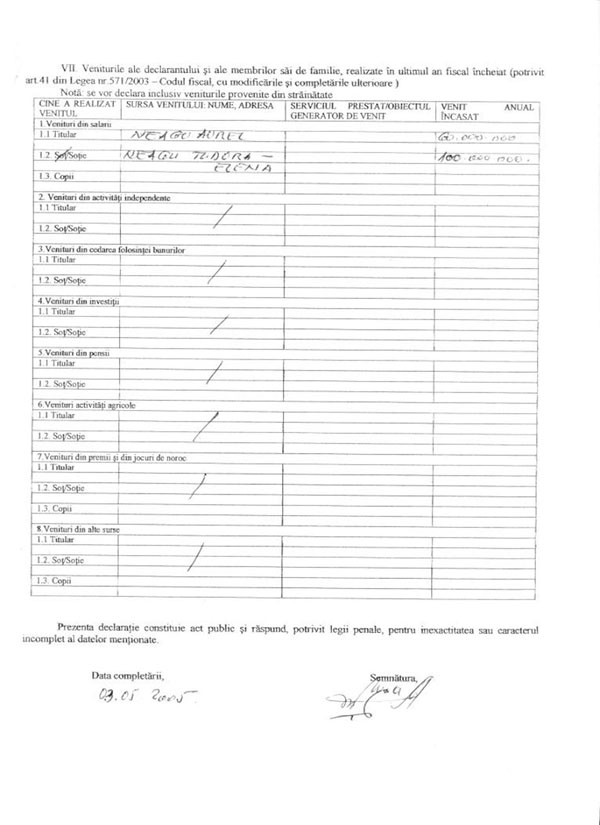 VII. Veniturile ale declarantului și ale membrilor săi de familie, realizate în ultimul an fiscal încheiat (potrivit
art.41 din Legea nr.571/2003 – Codul fiscal, cu modificările și completările ulterioare )
Notă: se vor declara inclusiv veniturile provenite din străinătate
CINE A REALIZAT VENITUL SURSA VENITULUI: NUME, ADRESA SERVICIUL PRESTAT/OBIECTUL GENERATOR DE VENIT VENIT ANUAL ÎNCASAT
1.Venituri din salarii
1.1 Titular NEAGU AUREL 60.000.000
1.2. Soț/Soție NEAGU TUDORA – ELENA 100.000.000.
1.3. Copii
2. Venituri din activități independente
1.1 Titular
1.2. Soț/Soție
3.Venituri din cedarea folosinței bunurilor
1.1 Titular
1.2. Soț/Soție
4.Venituri din investiții
1.1 Titular
1.2. Soț/Soție
5.Venituri din pensii
1.1 Titular
1.2. Soț/Soție
6.Venituri activități agricole
1.1 Titular
1.2. Soț/Soție
7.Venituri din premii și din jocuri de noroc
1.1 Titular
1.2. Soț/Soție
1.3. Copii
8.Venituri din alte surse
1.1 Titular
1.2. Soț/Soție
1.3. Copii
Prezenta declarație constituie act public și răspund, potrivit legii penale, pentru inexactitatea sau caracterul
incomplet al datelor menționate.
Data completării, Semnătura,
03.05 2005.